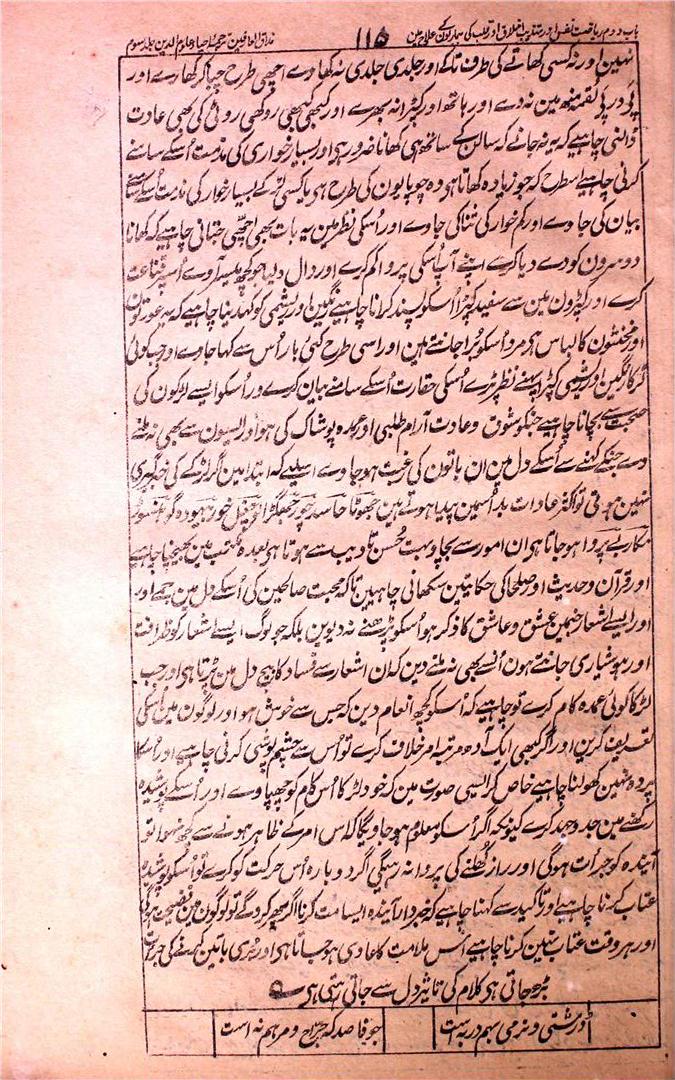 باب دوم ریاضت نفس اور تہذیب اخلاق اور قلب کی بیماریوں کے علاج مین ۱۱۵ مذاق العارفین ترجمہ احیاء علوم الدین جلد سوم
نہین اور نہ کسی کھانے کی طرف تاکے اور جلدی جلدی نہ کھاوے اچھی طرح چبا کر کھاوے اور
پَے در پَے لقمہ منھ مین نہ دے اور ہاتھ اور کپڑا نہ بھرے اور کبھی کبھی روکھی روٹی کی بھی عادت
ڈالنی چاہیے کہ یہ نہ جانے کہ سالن کے ساتھ ہی کھانا ضرور ہی اور بسیار خواری کی مذمت اُسکے سامنے
کرنی چاہیے اسطرح کہ جو زیادہ کھاتا ہی وہ چوپایون کی طرح ہی یا کسی لڑکے بسیار خوار کی مذمت اُسکے سامنے
بیان کی جاوے اور کم خوار کی ثنا کی جاوے اور اُسکی نظر مین یہ بات بھی اچھی جتانی چاہیے کہ کھانا
دوسرون کو دے دیا کرے اپنے آپ اُسکی پروا کم کرے اور دال دلیا جو کچھ میسر آوے اُسپر قناعت
کرے اور کپڑون مین سے سفید کپڑا اُسکو پسند کرانا چاہیے رنگین اور ریشمی کو کہدینا چاہیے کہ یہ عورتون
اور مخنثون کا لباس ہی مرد اُسکو بُرا جانتے ہین اور اسی طرح کئی بار اُس سے کہا جاوے اور جب کوئی
لڑکا رنگین اور ریشمی کپڑا پہنے نظر پڑے اُسکی حقارت اُسکے سامنے بیان کرے اور اُسکو ایسے لڑکون کی
صحبت سے بچانا چاہیے جنکو شوق و عادت آرام طلبی اور عمدہ پوشاک کی ہو اور ایسون سے بھی نہ ملنے
دے جنکے کہنے سے اُسکے دل مین ان باتون کی رغبت ہو جاوے اسلیے کہ ابتدا مین اگر لڑکے کی خبرگیری
نہین ہوتی تو اکثر عادات بد اُسمین پیدا ہوتے ہین جھوٹا حاسد چور جھگڑالو چغل خور بیہودہ گو ہنسوڑ
مکار بے پروا ہو جاتا ہی ان امور سے بچاو بہت حُسن تادیب سے ہوتا ہی بعدہ مکتب مین بھیجنا چاہیے
اور قرآن و حدیث اور صلحا کی حکایتین سکھانی چاہیین تاکہ محبت صالحین کی اُسکے دل مین جمے اور
اور ایسے اشعار جنمین عشق و عاشق کا ذکر ہو اُسکو پڑھنے نہ دیوین بلکہ جو لوگ ایسے اشعار کو ظرافت
اور ہوشیاری جانتے ہون اُنسے بھی نہ ملنے دین کہ ان اشعار سے فساد کا بیج دل مین پڑتا ہی اور جب
لڑکا کوئی عمدہ کام کرے تو چاہیے کہ اُسکو کچھ انعام دین کہ جس سے خوش ہو اور لوگون مین اُسکی
تعریف کرین اور اگر کبھی ایک آدھ مرتبہ امر خلاف کرے تو اُس سے چشم پوشی کرنی چاہیے اور اُسکا
پردہ نہین کھولنا چاہیے خاص کر ایسی صورت مین کہ خود لڑکا اُس کام کو چھپاوے اور اُسکے پوشیدہ
رکھنے مین جد و جہد کرے کیونکہ اگر اُسکو معلوم ہو جاویگا کہ اس امر کے ظاہر ہونے سے کچھ نہوا تو
آیندہ کو جرات ہوگی اور راز کُھلنے کی پروا نہ رہیگی اگر دوبارہ اُس حرکت کو کرے تو اُسکو پوشیدہ
عتاب کرنا چاہیے اور تاکید سے کہنا چاہیے کہ خبردار آیندہ ایسا مت کرنا اگر پھر کروگے تو لوگون مین فضیحت ہوگا
اور ہر وقت عتاب نہین کرنا چاہیے اُس ملامت کا عادی ہو جاتا ہی اور بُری باتین کرنے کی جرات
بڑھ جاتی ہی کلام کی تاثیر دل سے جاتی رہتی ہی
درشتی و نرمی بہم در بہ است چو فاصد کہ جراح و مرہم نہ است